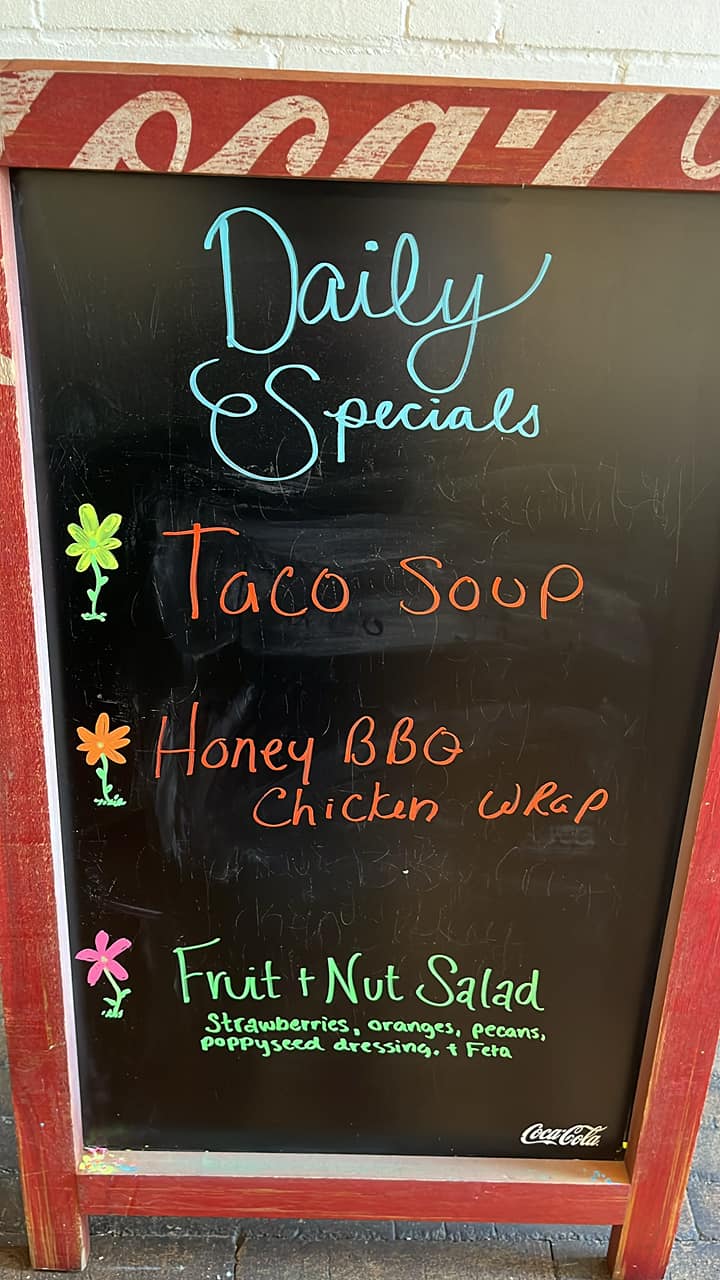 Coca-C
Daily
Specials
Taco Soup
Honey BBQ
Chicken WRaP
Fruit + Nut Salad
Strawberries, oranges, pecans,
poppyseed dressing. + Feta
Coca-Cola